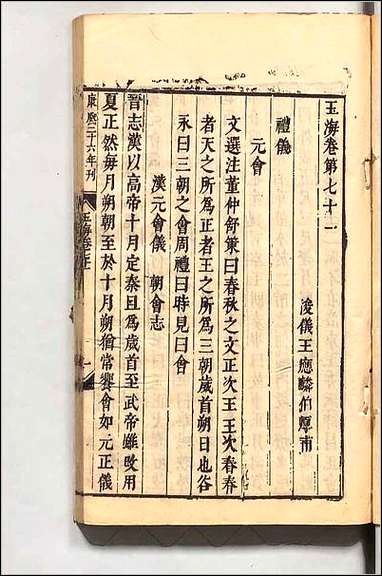 玉海卷第七十一
浚儀王應麟伯厚甫
禮儀
元會
文選注董仲舒策曰春秋之文正次王王次春春
者天之所爲正者王之所爲三朝歲首朔日也谷
永曰三朝之會周禮曰時見曰會
漢元會儀 朝會志
晉志漢以高帝十月定秦且爲歲首至武帝雖改用
夏正然每月朔朝至於十月朔猶常饗會如元正儀
康熙二十六年刊
玉海卷七十一
一